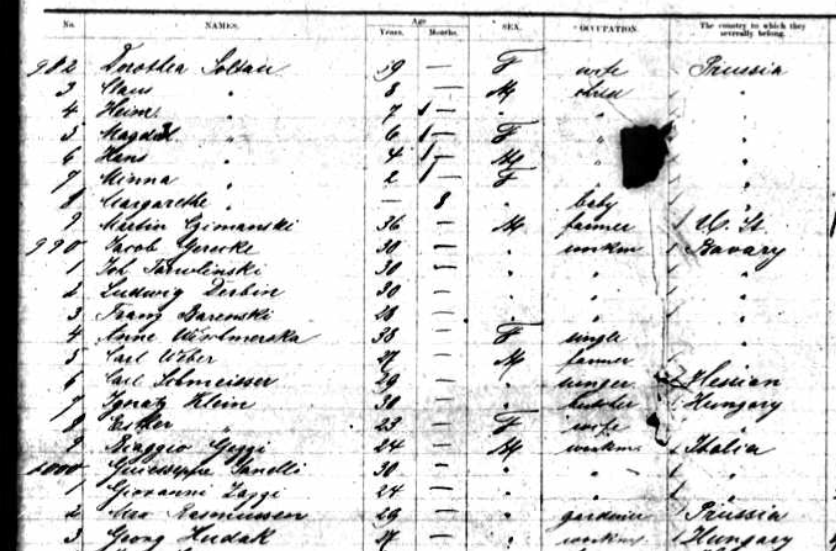 No. NAMES. Age Years. Months. SEX. OCCUPATION. The country to which they severally belong.
982 Dorothea Soltau 39 — F wife Prussia
3 Claus " 8 — M child "
4 Heinr. " 7 — " " "
5 Magdal. " 6 — F " "
6 Hans " 4 — M "
7 Minna " 2 — F "
8 Margarethe " — 8 " baby "
9 Martin Czimanski 36 — M farmer U. St.
990 Jacob Gerecke 30 — " workm. Bavary
1 Joh 30 — " " "
2 Ludwig Derbin 30 — " " "
3 Franz Barenski 28 — " " "
4 Anne 38 — F single "
5 Carl Weber 27 — M farmer "
6 Carl 29 — " Hessian
7 Ignatz Klein 30 — " butcher Hungary
8 Esther " 23 — F wife "
9 Biaggio Geggi 24 — M workm. Italia
1000 Guiesseppe Sanelli 30 — " " "
1 Giovanni Zaggi 24 — " " "
2 Max Rasmussen 29 — " gardener Prussia
3 Georg Hudak 27 — " workm. Hungary